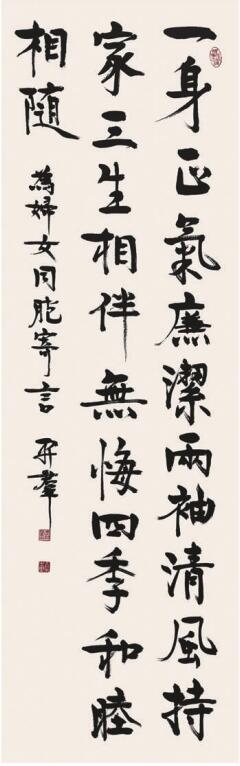 一身正氣廉潔兩袖清風持
家三生相伴無悔四季和睦
相隨
為婦女同胞寄言